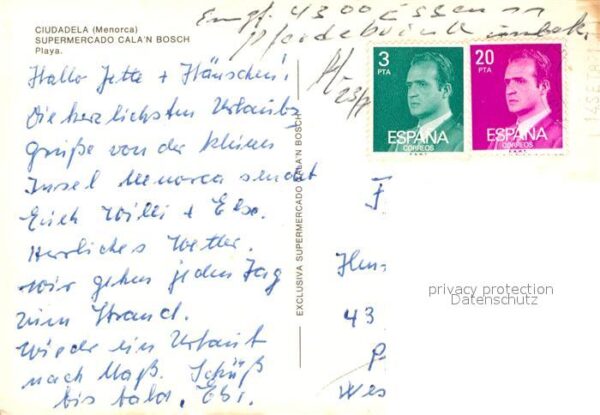 CIUDADELA (Menorca)
SUPERMERCADO CALA'N BOSCH
Playa.
Empf. 4300 Essen 11
Pferdebucht unbek.
Hallo Jette + Hänschen!
Die herzlichsten Urlaubs
grüße von der kleinen
Insel Menorca sendet
Erich Willi + Else.
Herrliches Wetter.
Wir gehen jeden Tag
zum Strand.
Wieder ein Urlaub
nach Maß. Tschüß
bis bald, Ebi.
EXCLUSIVA SUPERMERCADO CALA'N BOSCH
3
PTA
ESPAÑA
CORREOS
20
PTA
ESPAÑA
CORREOS
F
43
Wes
privacy protection
Datenschutz